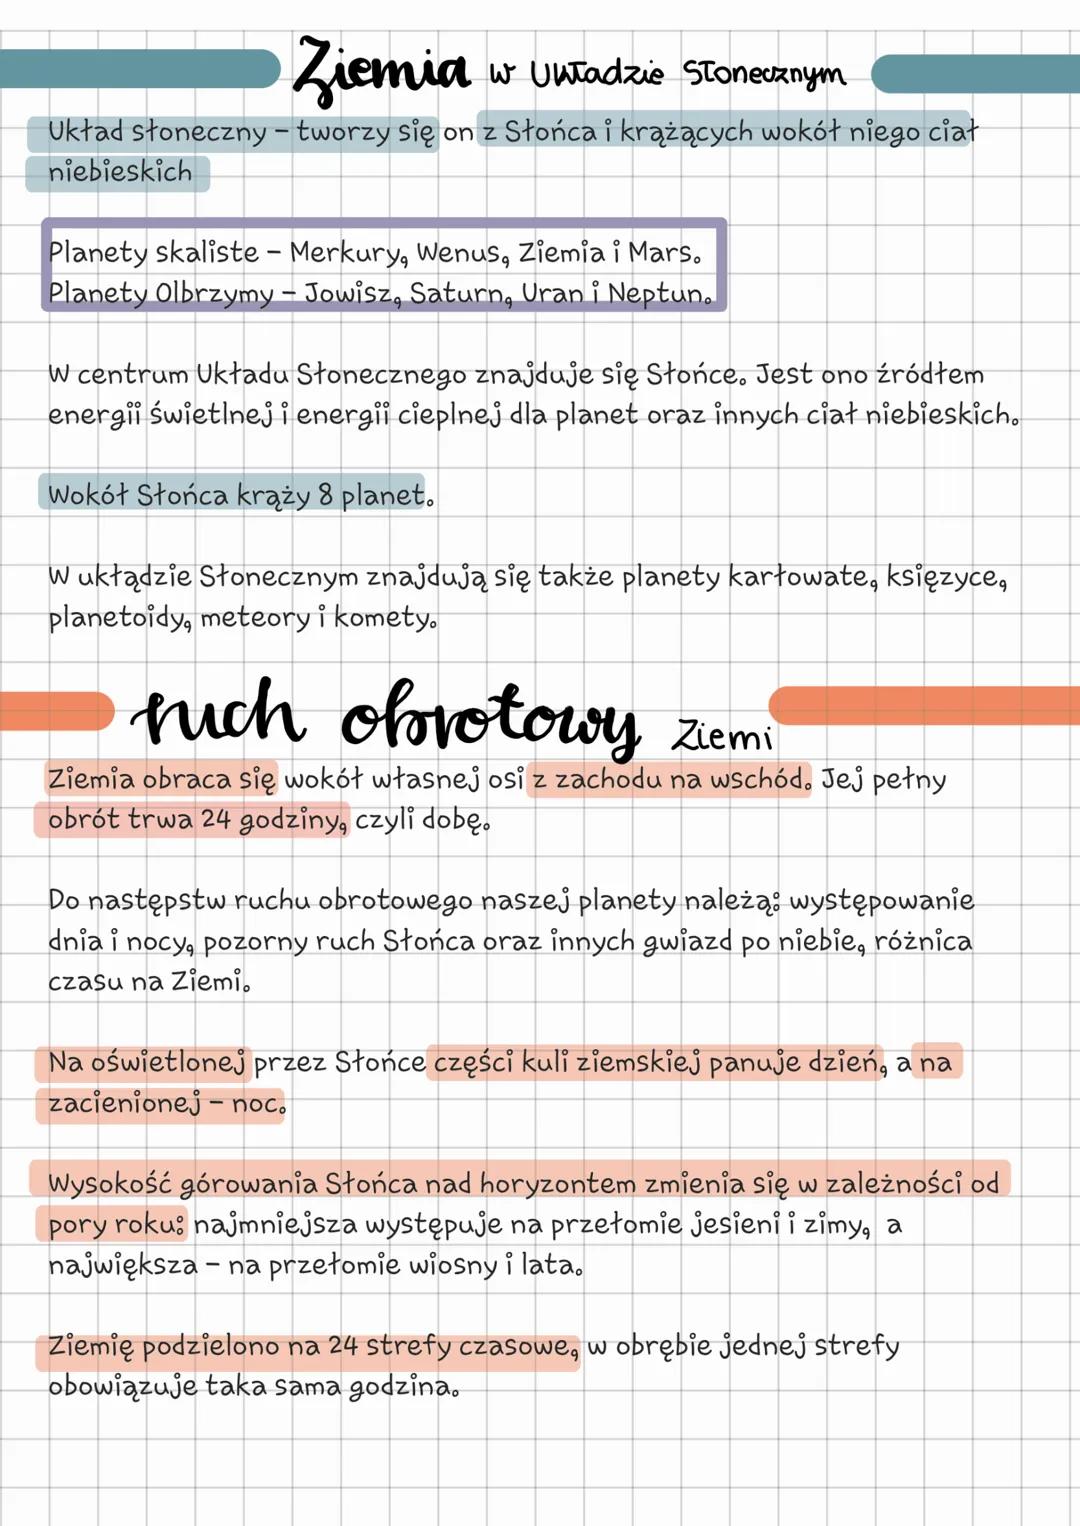 Ziemia w Układzie Słonecznym
Układ słoneczny – tworzy się on z Słońca i krążących wokół niego ciał
niebieskich
Planety skaliste – Merkury, Wenus, Ziemia i Mars.
Planety Olbrzymy – Jowisz, Saturn, Uran i Neptun.
W centrum Układu Słonecznego znajduje się Słońce. Jest ono źródłem
energii świetlnej i energii cieplnej dla planet oraz innych ciał niebieskich.
Wokół Słońca krąży 8 planet.
W ukłądzie Słonecznym znajdują się także planety karłowate, księzyce,
planetoidy, meteory i komety.
ruch obrotowy Ziemi
Ziemia obraca się wokół własnej osi z zachodu na wschód. Jej pełny
obrót trwa 24 godziny, czyli dobę.
Do następstw ruchu obrotowego naszej planety należą: występowanie
dnia i nocy, pozorny ruch Słońca oraz innych gwiazd po niebie, różnica
czasu na Ziemi.
Na oświetlonej przez Słońce części kuli ziemskiej panuje dzień, a na
zacienionej – noc.
Wysokość górowania Słońca nad horyzontem zmienia się w zależności od
pory roku: najmniejsza występuje na przełomie jesieni i zimy, a
największa – na przełomie wiosny i lata.
Ziemię podzielono na 24 strefy czasowe, w obrębie jednej strefy
obowiązuje taka sama godzina.